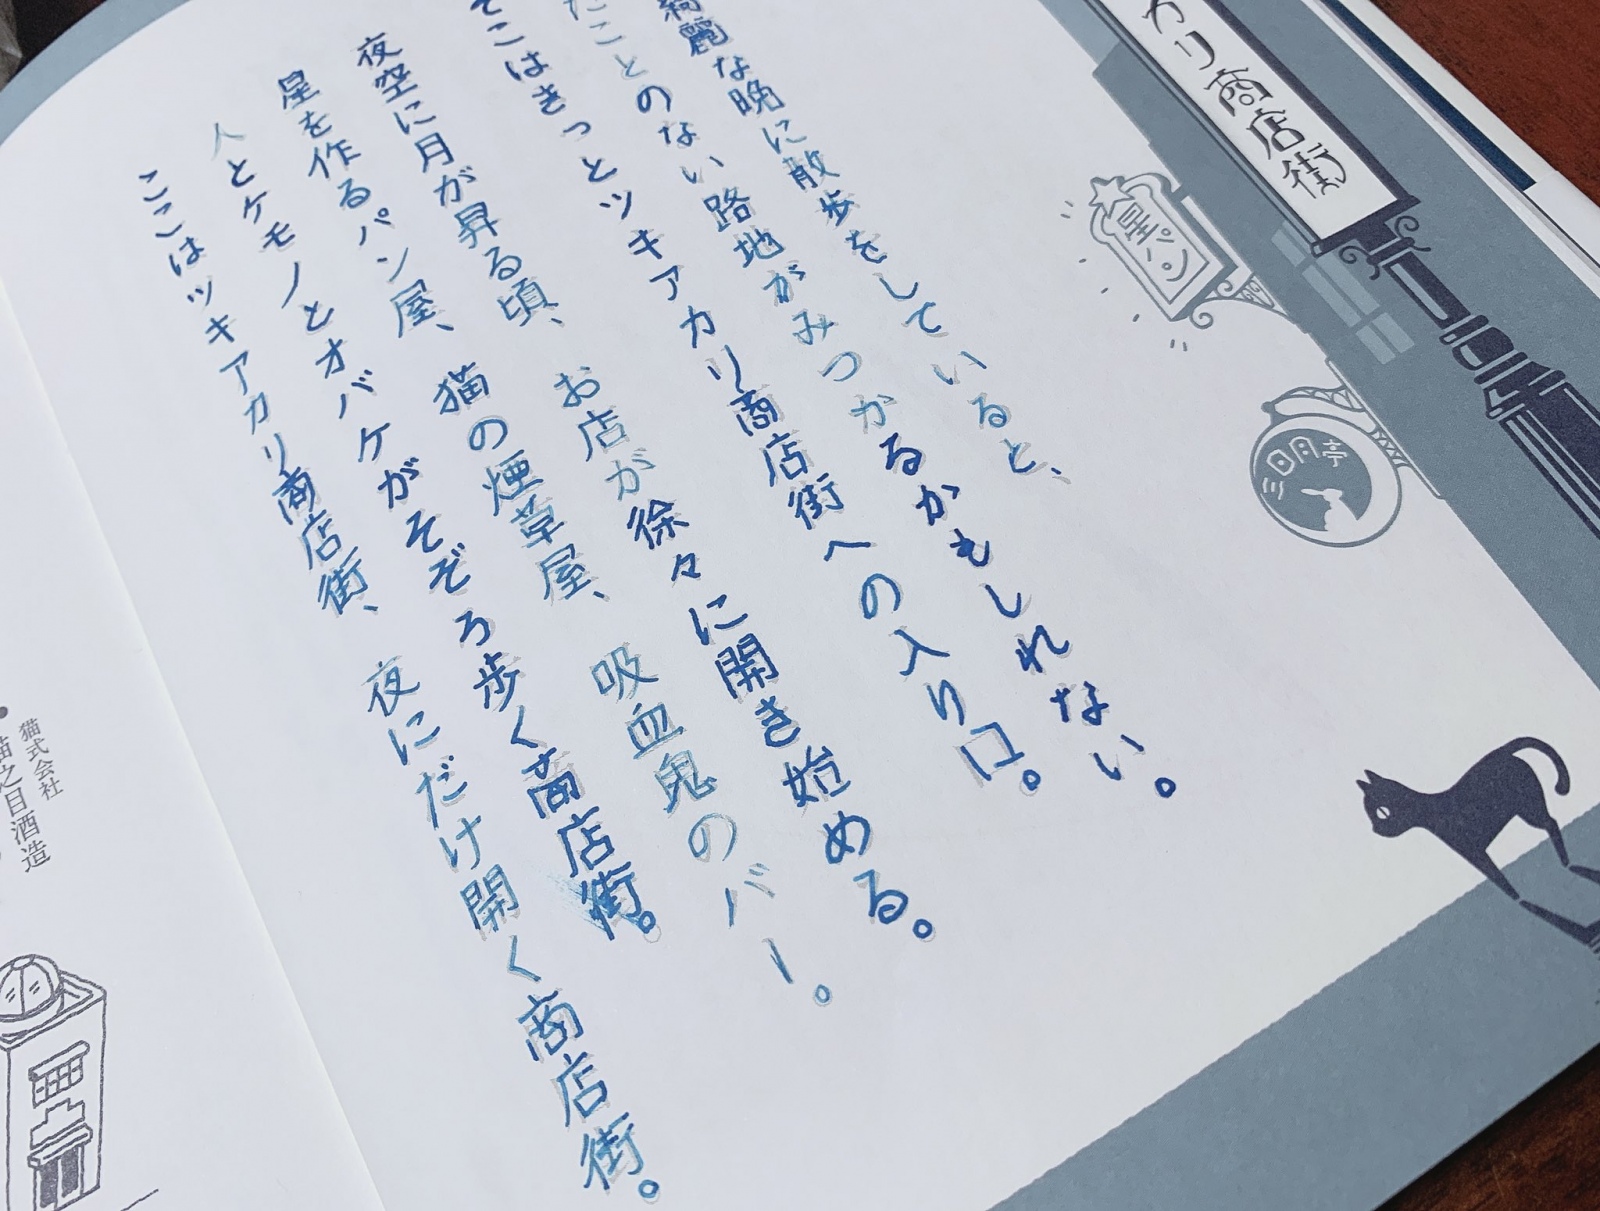 カリ商店街
星パン
三日月亭
綺麗な晩に散歩をしていると、
たことのない路地がみつかるかもしれない。
こはきっとツキアカリ商店街への入り口。
夜空に月が昇る頃、お店が徐々に開き始める。
星を作るパン屋、猫の煙草屋、吸血鬼のバー。
人とケモノとオバケがそぞろ歩く商店街。
ここはツキアカリ商店街、夜にだけ開く商店街。
猫式会社
猫之目酒造